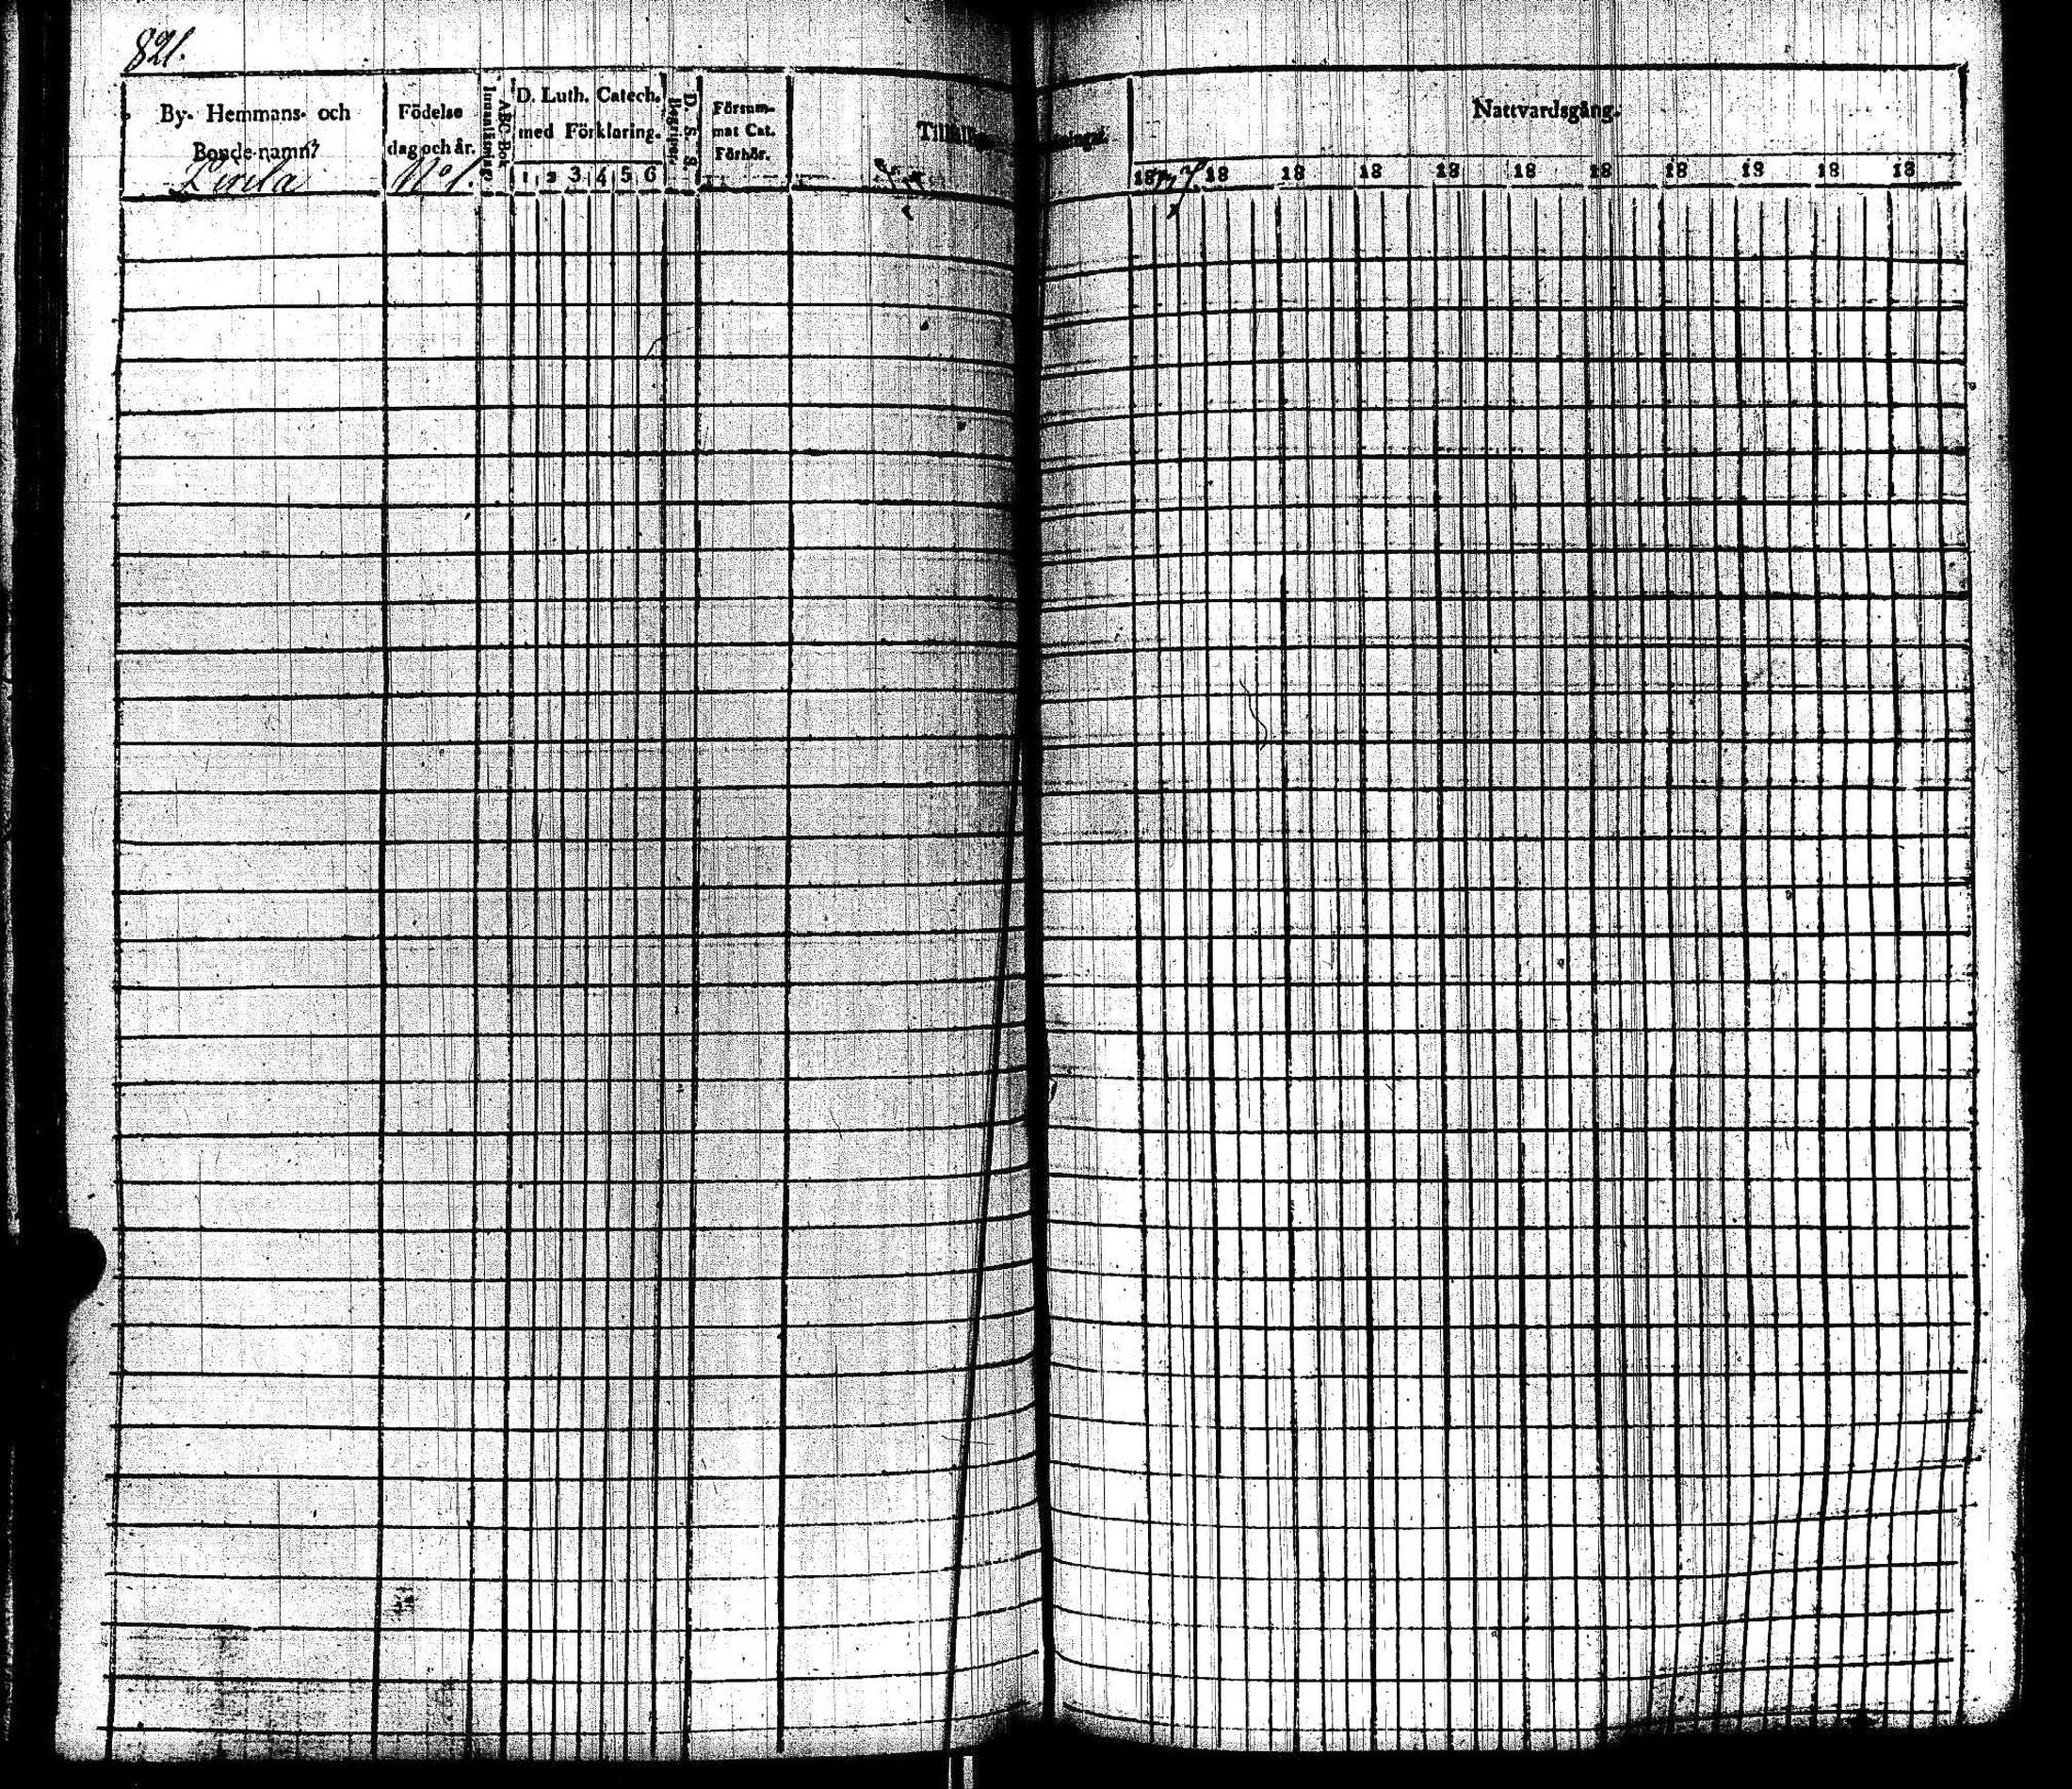 821.
By- Hemmans- och
Bonde-namn?
Födelse
dag och år.
No 1.
ABC-Bok
Innanläsning
D. Luth. Catech.
med Förklaring.
1 2 3 4 5 6
D. S. S.
Begrepp.
Försum-
mat Cat.
Förhör.
Nattvardsgång.
18 18 18 18 18 18 18 18 18 18 18